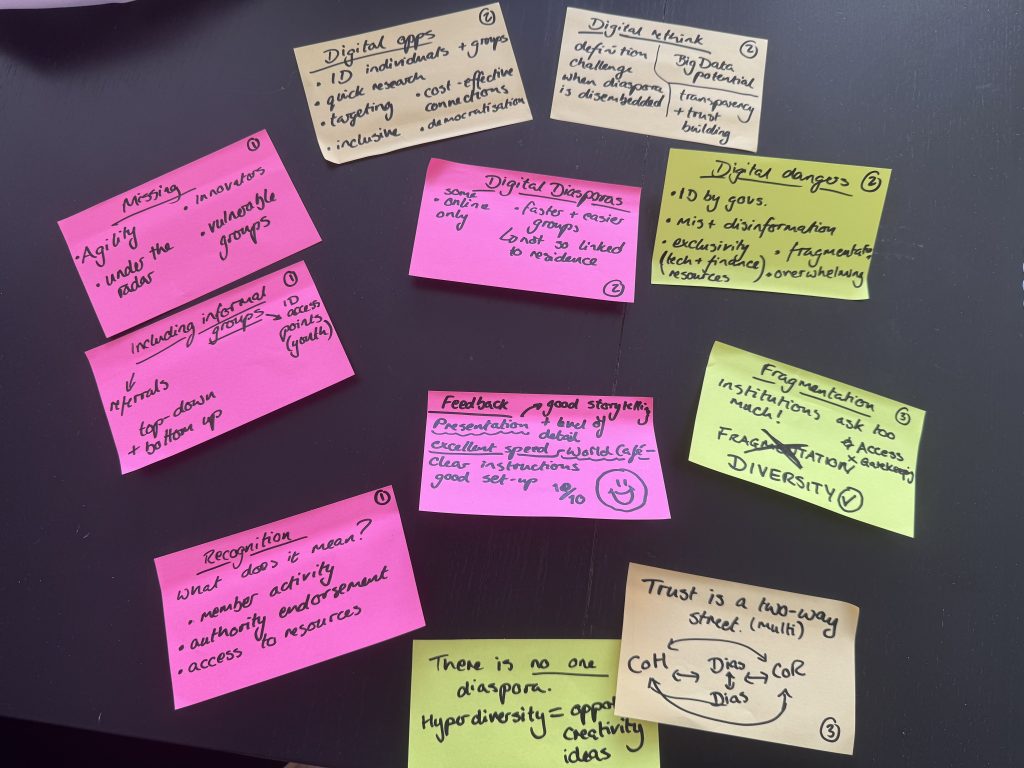 Digital apps ②
• ID individuals + groups
• quick research
• targeting
• cost-effective
connections
• inclusive
• democratisation
Digital rethink ②
definition
challenge
when diaspora
is disembedded
Big Data
potential
transparency
+ trust
building
Missing ①
• Agility
• under the
radar
• innovators
• vulnerable
groups
Digital Diasporas
• some
online
only
• faster + easier
groups
↳ not so linked
to residence
②
Digital dangers ②
• ID by govs.
• mis + disinformation
• exclusivity
(tech + finance)
resources
• fragmentation
• overwhelming
Including informal ①
groups → ID
access
points
(youth)
↓
referrals
top-down
+ bottom up
Feedback → good storytelling
Presentation + level of
detail
excellent speed - World Café -
clear instructions
good set-up 10/10
Fragmentation ③
institutions ask too
much!
FRAGMENTATION
DIVERSITY ✓
Access
x Gatekeeping
Recognition ①
What does it mean?
• member activity
• authority endorsement
• access to resources
There is no one
diaspora.
Hyperdiversity =
creativity
ideas
Trust is a two-way
street. (multi)
CoH ↔ Dias ↔ CoR
↕
Dias
③